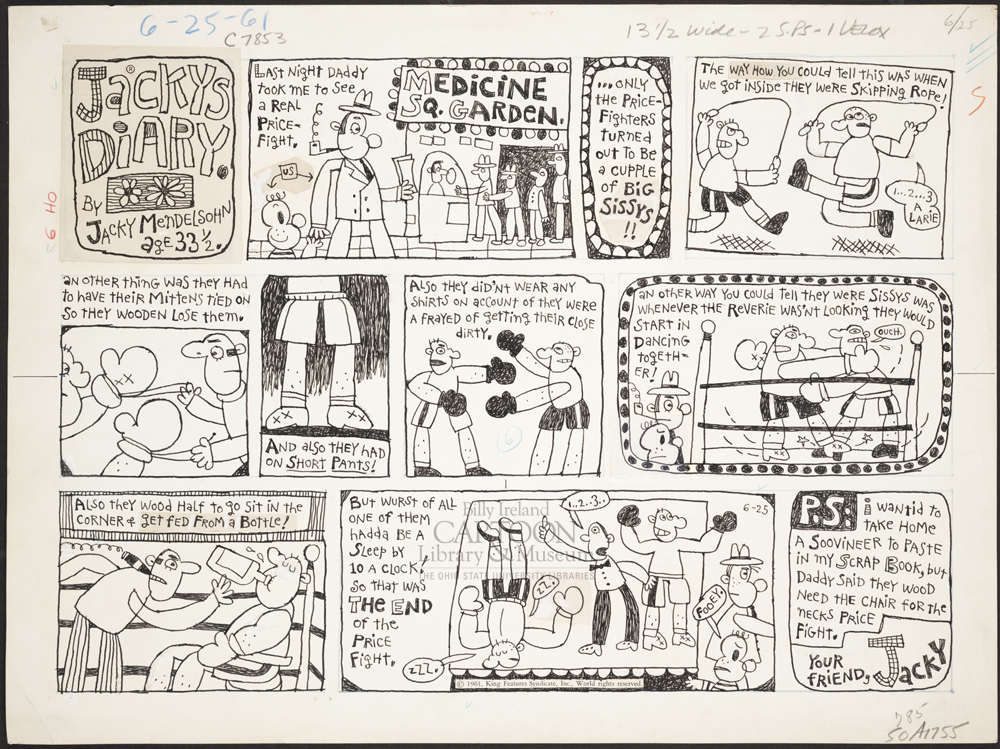 6-25-61
C7853
13 1/2 Wide - 2 S.P.S - 1 Velox
6/25
S
6 HO
JACKYS
DIARY.
®
BY
JACKY MENDELSOHN
age 33 ½.
LAST NIGHT DADDY
TOOK ME TO SEE
A REAL
PRICE-
FIGHT.
US
MEDICINE
SQ. GARDEN.
...ONLY
THE PRICE-
FIGHTERS
TURNED
OUT TO BE
A CUPPLE
OF BIG
SISSYS
!!
THE WAY HOW YOU COULD TELL THIS WAS WHEN
WE GOT INSIDE THEY WERE SKIPPING ROPE!
1...2...3
A
LARIE
AN OTHER THING WAS THEY HAD
TO HAVE THEIR MITTENS TIED ON
SO THEY WOODEN LOSE THEM.
AND ALSO THEY HAD
ON SHORT PANTS!
ALSO THEY DID'NT WEAR ANY
SHIRTS ON ACCOUNT OF THEY WERE
A FRAYED OF GETTING THEIR CLOSE
DIRTY.
6
AN OTHER WAY YOU COULD TELL THEY WERE SISSYS WAS
WHENEVER THE REVERIE WAS'NT LOOKING THEY WOULD
START IN
DANCING
TOGETH-
ER!
OUCH.
ALSO THEY WOOD HALF TO GO SIT IN THE
CORNER & GET FED FROM A BOTTLE!
BUT WURST OF ALL
ONE OF THEM
HADDA BE A
SLEEP BY
10 A CLOCK,
SO THAT WAS
THE END
OF THE
PRICE
FIGHT.
1..2..3..
ZZ.
ZZZ.
6-25
FOOEY.
Billy Ireland
CARTOON
Library & Museum
THE OHIO STATE UNIVERSITY LIBRARIES
© 1961, King Features Syndicate, Inc., World rights reserved.
P.S: I WANTID TO
TAKE HOME
A SOOVINEER TO PASTE
IN MY SCRAP BOOK, BUT
DADDY SAID THEY WOOD
NEED THE CHAIR FOR THE
NECKS PRICE
FIGHT.
YOUR
FRIEND,
JACKY
785
50A1755